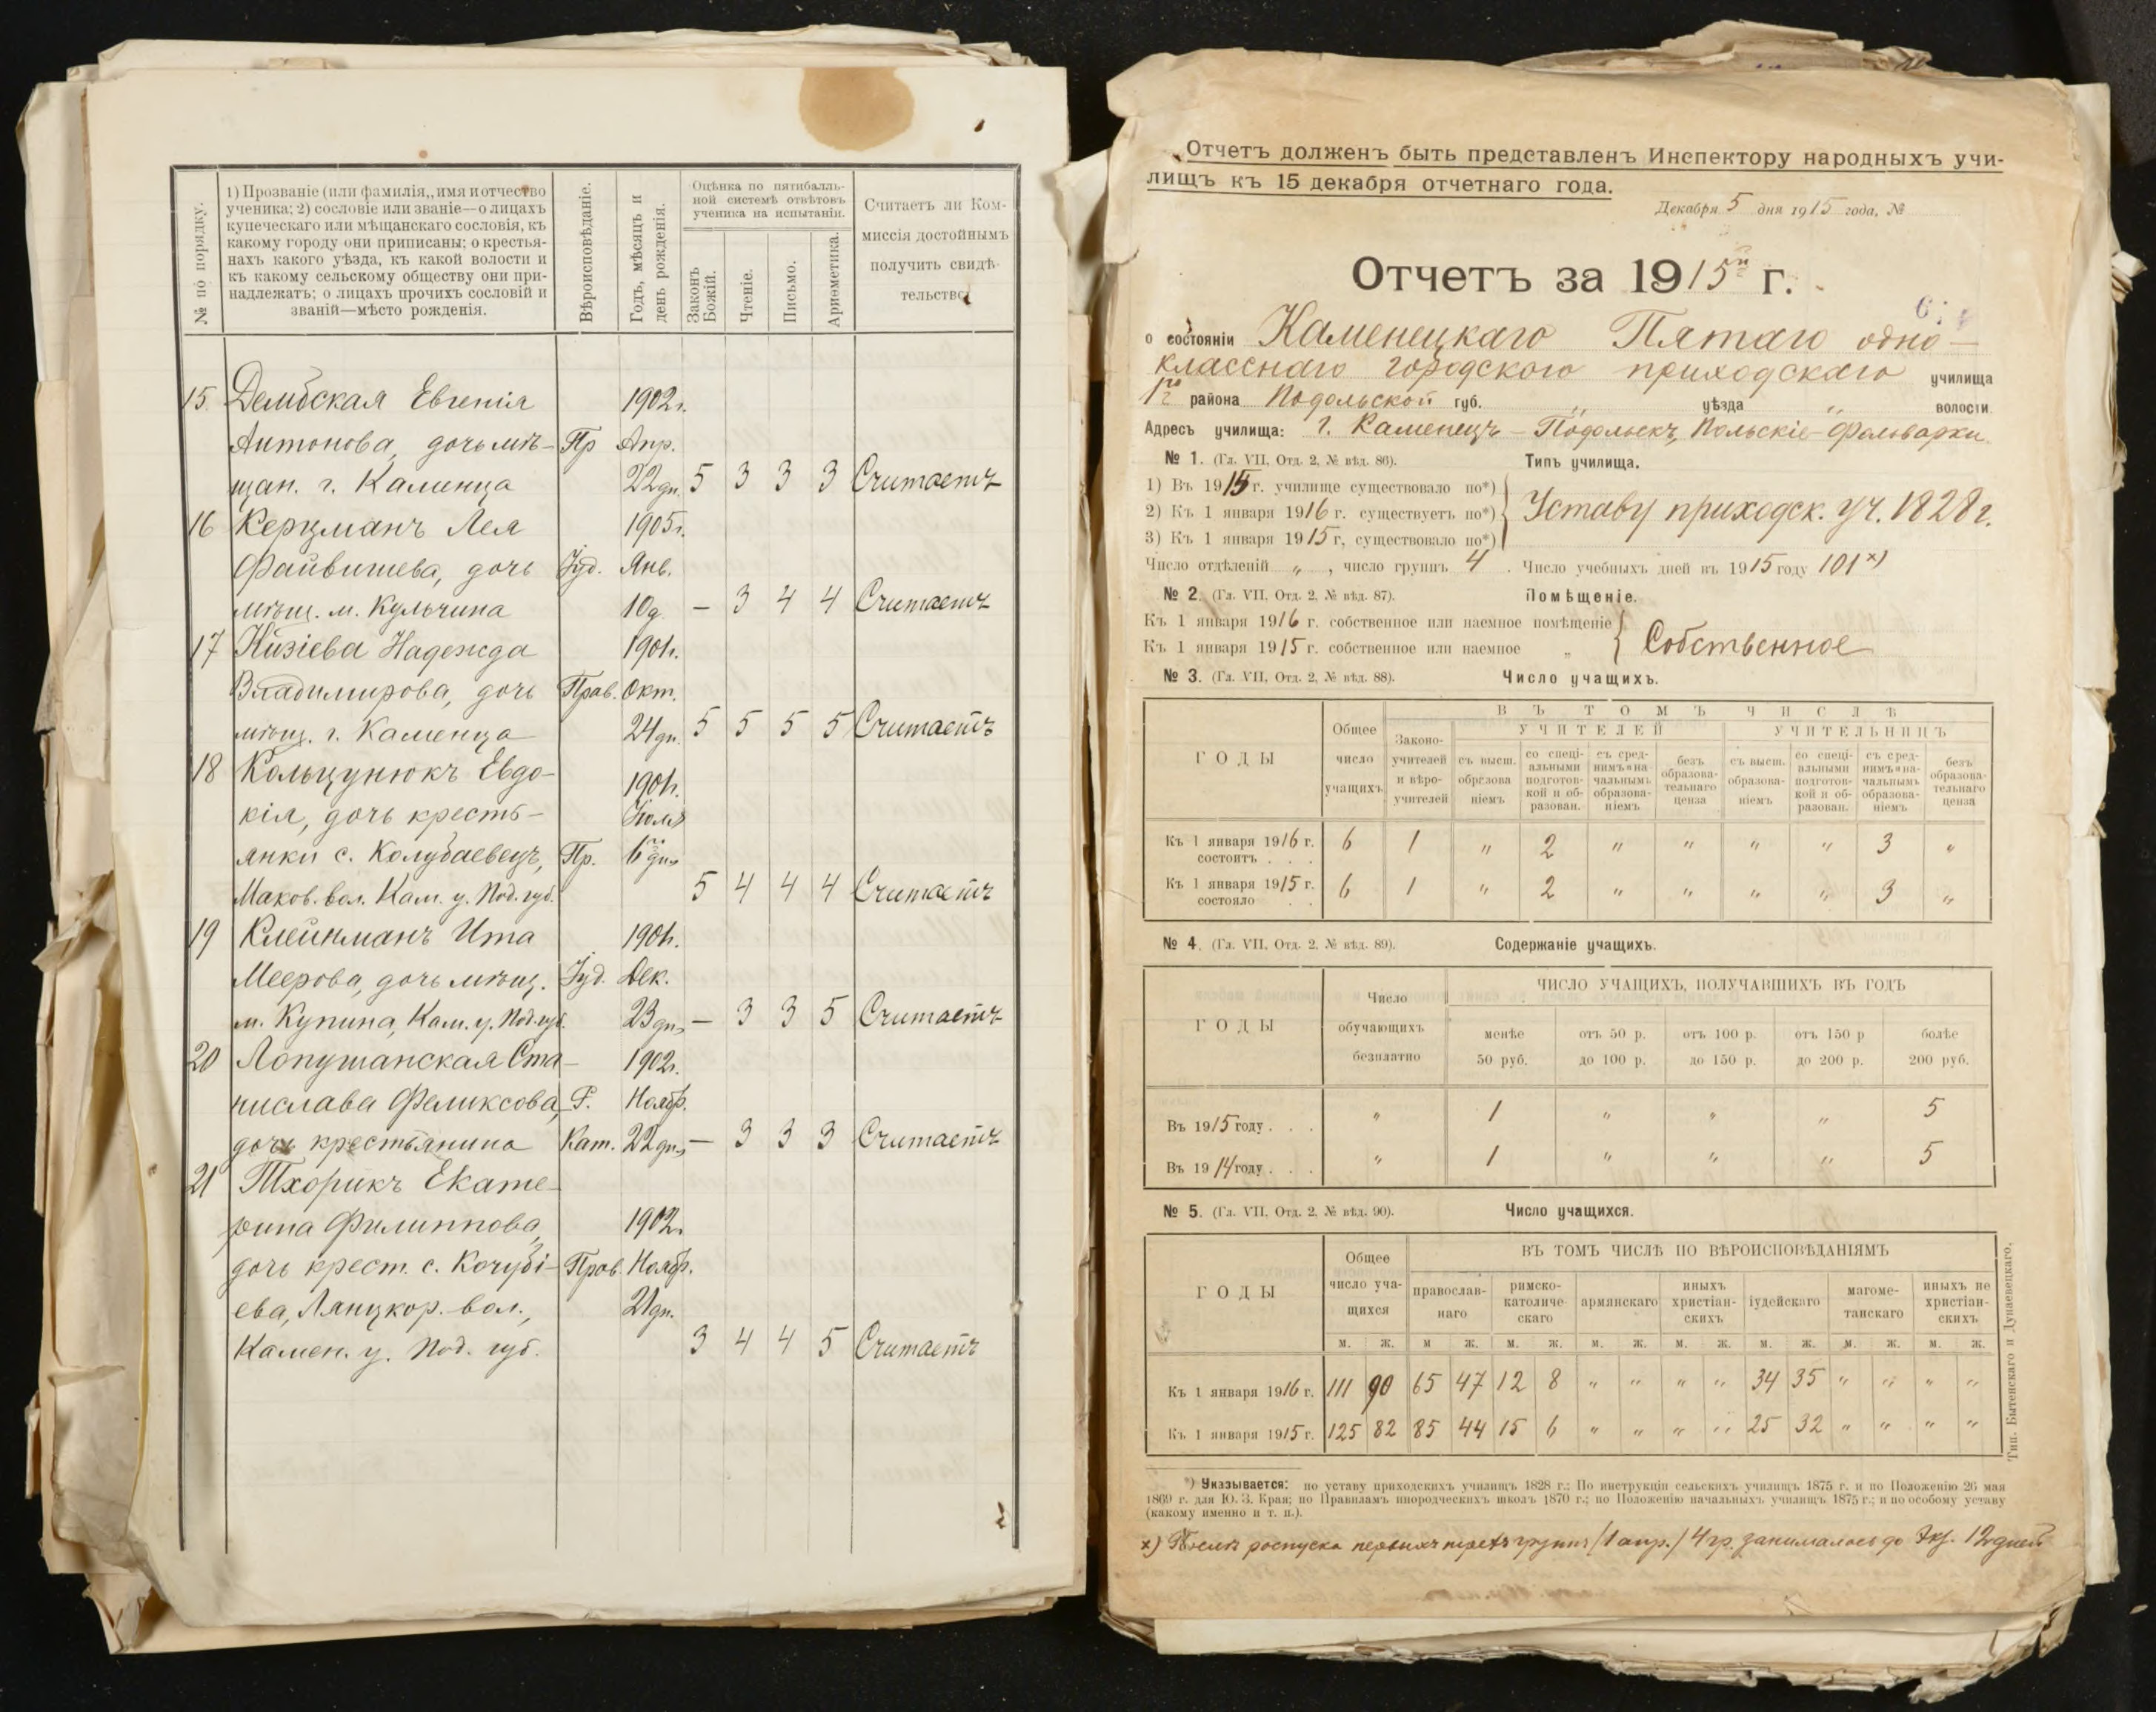 № по порядку.
1) Прозваніе (или фамилія,, имя и отчество
ученика; 2) сословіе или званіе—о лицахъ
купеческаго или мѣщанскаго сословія, къ
какому городу они приписаны; о крестья-
нахъ какого уѣзда, къ какой волости и
къ какому сельскому обществу они при-
надлежатъ; о лицахъ прочихъ сословій и
званій—мѣсто рожденія.
Вѣроисповѣданіе.
Годъ, мѣсяцъ и
день рожденія.
Оцѣнка по пятибалль-
ной системѣ отвѣтовъ
ученика на испытаніи.
Законъ
Божій.
Чтеніе.
Письмо.
Ариѳметика.
Считаетъ ли Ком-
миссія достойнымъ
получить свидѣ-
тельство
15 Дембская Евгенія 1902г.
Антонова, дочь мѣ- Пр Апр.
щан. г. Каменца 22 дн. 5 3 3 3 Считаетъ
16 Керцманъ Лея 1905г.
Файвишева, дочь Іуд. Янв.
мѣщ. м. Кульчина 10 д. — 3 4 4 Считаетъ
17 Низіева Надежда 1901г.
Владимирова, дочь Прав. Окт.
мѣщ. г. Каменца 24 дн. 5 5 5 5 Считаетъ
18 Кольцунюкъ Евдо- 1901г.
кія, дочь кресть- Іюля
янки с. Колубаевецъ, Пр. 1го дня
Маков. вол. Кам. у. Под. губ. 5 4 4 4 Считаетъ
19 Клейнманъ Ита 1901г.
Меерова, дочь мѣщ. Іуд. Дек.
м. Купина, Кам. у. Под. губ. 23 дн. — 3 3 5 Считаетъ
20 Лопушанская Ста- 1902г.
нислава Феликсова, Р. Ноябр.
дочь крестьянина Кат. 22 дн. — 3 3 3 Считаетъ
21 Тхорикъ Екате-
рина Филиппова, 1902г.
дочь крест. с. Кочубі- Прав. Ноябр.
ева, Лянцкор. вол., 21 дн.
Камен. у. Под. губ. 3 4 4 5 Считаетъ
Отчетъ долженъ быть представленъ Инспектору народныхъ учи-
лищъ къ 15 декабря отчетнаго года.
Декабря 5 дня 1915 года, №
Отчетъ за 1915й г.
о состояніи Каменецкаго Пятаго одно-
класснаго городского приходскаго училища
1го района Подольской губ. „ уѣзда „ волости
Адресъ училища: г. Каменецъ-Подольскъ, Польскіе-Фольварки
№ 1. (Гл. VII, Отд. 2, № вѣд. 86). Типъ училища.
1) Въ 1915 г. училище существовало по*)
2) Къ 1 января 1916 г. существуетъ по*) Уставу приходск. уч. 1828 г.
3) Къ 1 января 1915 г, существовало по*)
Число отдѣленій „ , число группъ 4 . Число учебныхъ дней въ 1915 году 101 х)
№ 2. (Гл. VII, Отд. 2, № вѣд. 87). Помѣщеніе.
Къ 1 января 1916 г. собственное или наемное помѣщеніе
Къ 1 января 1915 г. собственное или наемное „ Собственное
№ 3. (Гл. VII, Отд. 2, № вѣд. 88). Число учащихъ.
ГОДЫ
Общее
число
учащихъ
ВЪ ТОМЪ ЧИСЛѢ
Законо-
учителей
и вѣро-
учителей
УЧИТЕЛЕЙ
съ высш.
образова
ніемъ
со спеці-
альными
подготов-
кой и об-
разован.
съ сред-
нимъ и на-
чальнымъ
образова-
ніемъ
безъ
образова-
тельнаго
ценза
УЧИТЕЛЬНИЦЪ
съ высш.
образова-
ніемъ
со спеці-
альными
подготов-
кой и об-
разован.
съ сред-
нимъ и на-
чальнымъ
образова-
ніемъ
безъ
образова-
тельнаго
ценза
Къ 1 января 1916 г.
состоитъ . . . 6 1 „ 2 „ „ „ „ 3 „
Къ 1 января 1915 г.
состояло . . 6 1 „ 2 „ „ „ „ 3 „
№ 4. (Гл. VII, Отд. 2, № вѣд. 89). Содержаніе учащихъ.
ГОДЫ
Число
обучающихъ
безплатно
ЧИСЛО УЧАЩИХЪ, ПОЛУЧАВШИХЪ ВЪ ГОДЪ
менѣе
50 руб.
отъ 50 р.
до 100 р.
отъ 100 р.
до 150 р.
отъ 150 р
до 200 р.
болѣе
200 руб.
Въ 1915 году . . . „ 1 „ „ „ 5
Въ 1914 году . . . „ 1 „ „ „ 5
№ 5. (Гл. VII, Отд. 2, № вѣд. 90). Число учащихся.
ГОДЫ
Общее
число уча-
щихся
ВЪ ТОМЪ ЧИСЛѢ ПО ВѢРОИСПОВѢДАНІЯМЪ
православ-
наго
римско-
католиче-
скаго
армянскаго
иныхъ
христіан-
скихъ
іудейскаго
магоме-
танскаго
иныхъ не
христіан-
скихъ
м. ж. м ж. м. ж. м. ж. м. ж. м. ж. м. ж. м. ж.
Къ 1 января 1916 г. 111 90 65 47 12 8 „ „ „ „ 34 35 „ „ „ „
Къ 1 января 1915 г. 125 82 85 44 15 6 „ „ „ „ 25 32 „ „ „ „
Тип. Бытенскаго и Дунаевецкаго.
*) Указывается: по уставу приходскихъ училищъ 1828 г.; По инструкціи сельскихъ училищъ 1875 г. и по Положенію 26 мая
1869 г. для Ю. З. Края; по Правиламъ инородческихъ школъ 1870 г.; по Положенію начальныхъ училищъ 1875 г.; и по особому уставу
(какому именно и т. п.).
х) Послѣ роспуска первыхъ трехъ группъ (1 апр.) 4 гр. занималась до Экз. 12 дней